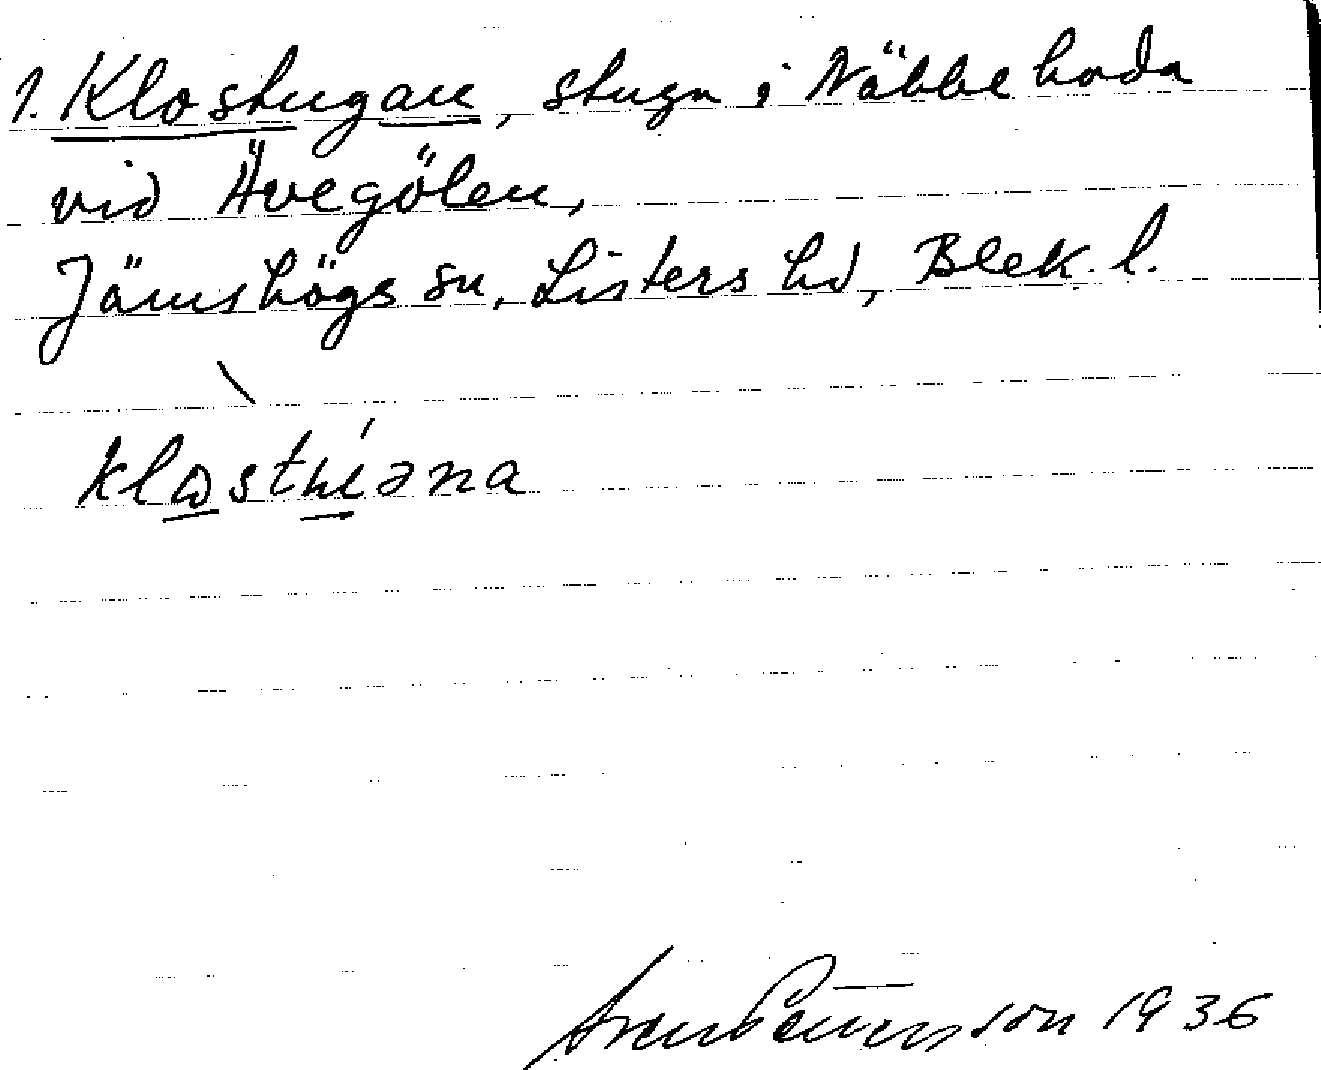 1. Klostugan, stuga i Näbbeboda
vid Ävegölen,
Jämshögs sn, Listers hd, Blek. l.
klɷstɯ́əna
Sven Petersson 1936